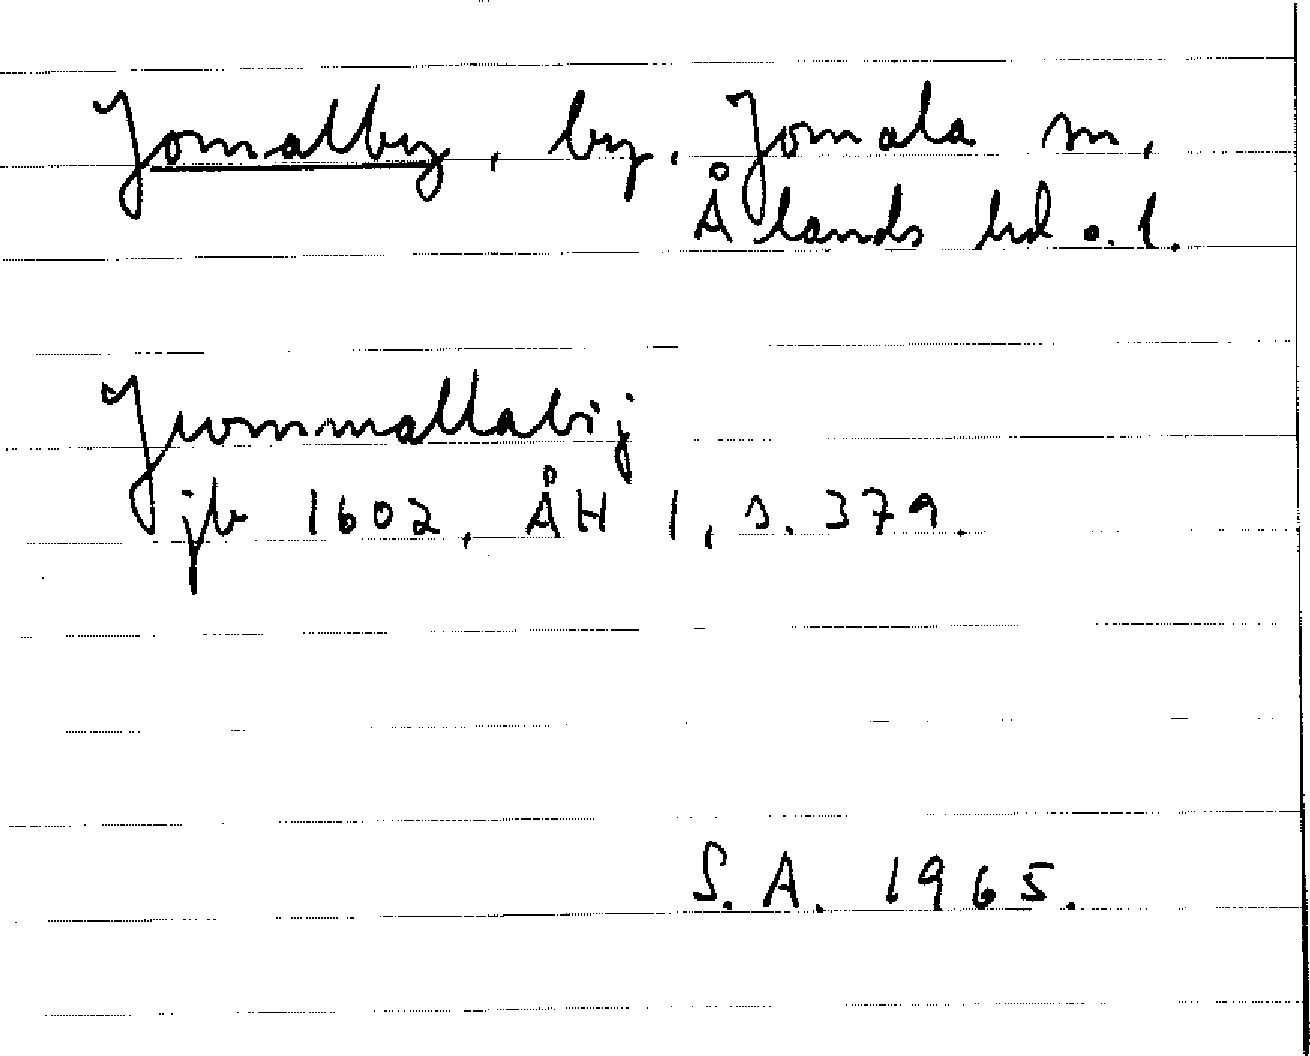 Jomalby, by. Jomala sn,
Ålands hd o. l.
Juommallabij
jb 1602, ÅH 1, s. 379.
S. A. 1965.